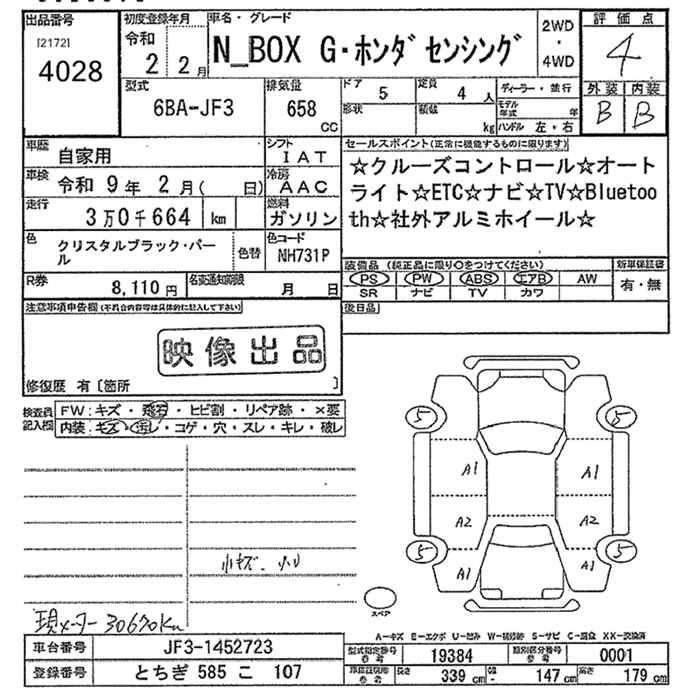 出品番号
[2172]
4028
初度登録年月
令和
2 2月
車名・グレード
N_BOX G・ホンダセンシング
2WD
・
4WD
評価点
4
外装 内装
B B
型式
6BA-JF3
排気量
658
cc
ドア 5
形状
定員 4 人
積載 kg
ディーラー・並行
モデル年式 年
ハンドル 左・右
車歴
自家用
シフト
IAT
車検
令和 9年 2月( 日)
冷房
AAC
走行
3万0千664 km
燃料
ガソリン
色
クリスタルブラック・パール
色替
色コード
NH731P
R券
8,110円
名変通知期限
月 日
セールスポイント(正常に機能するものに限ります)
☆クルーズコントロール☆オート
ライト☆ETC☆ナビ☆TV☆Bluetoo
th☆社外アルミホイール☆
装備品 (純正品に限り〇をつけてください)
PS PW ABS エアB AW
SR ナビ TV カワ
新車保証書
有・無
注意事項申告欄(不具合内容等は具体的に記入して下さい)
後日品
映像出品
修復歴 有〔箇所 〕
検査員
記入欄
FW:キズ・飛石・ヒビ割・リペア跡・×要
内装:キズ・汚レ・コゲ・穴・スレ・キレ・破レ
5 5
A1 A1
A2 A2
5 5
A1 A1
スペア
小キズ、
現メーター30670km
A-キズ E-エクボ U-凹み W-補修跡 S-サビ C-腐食 XX-交換済
車台番号
JF3-1452723
登録番号
とちぎ 585 こ 107
型式指定番号
参考
19384
類別区分番号
参考
0001
車両証切取
参考
長さ 339 cm
幅 147 cm
高さ 179 cm